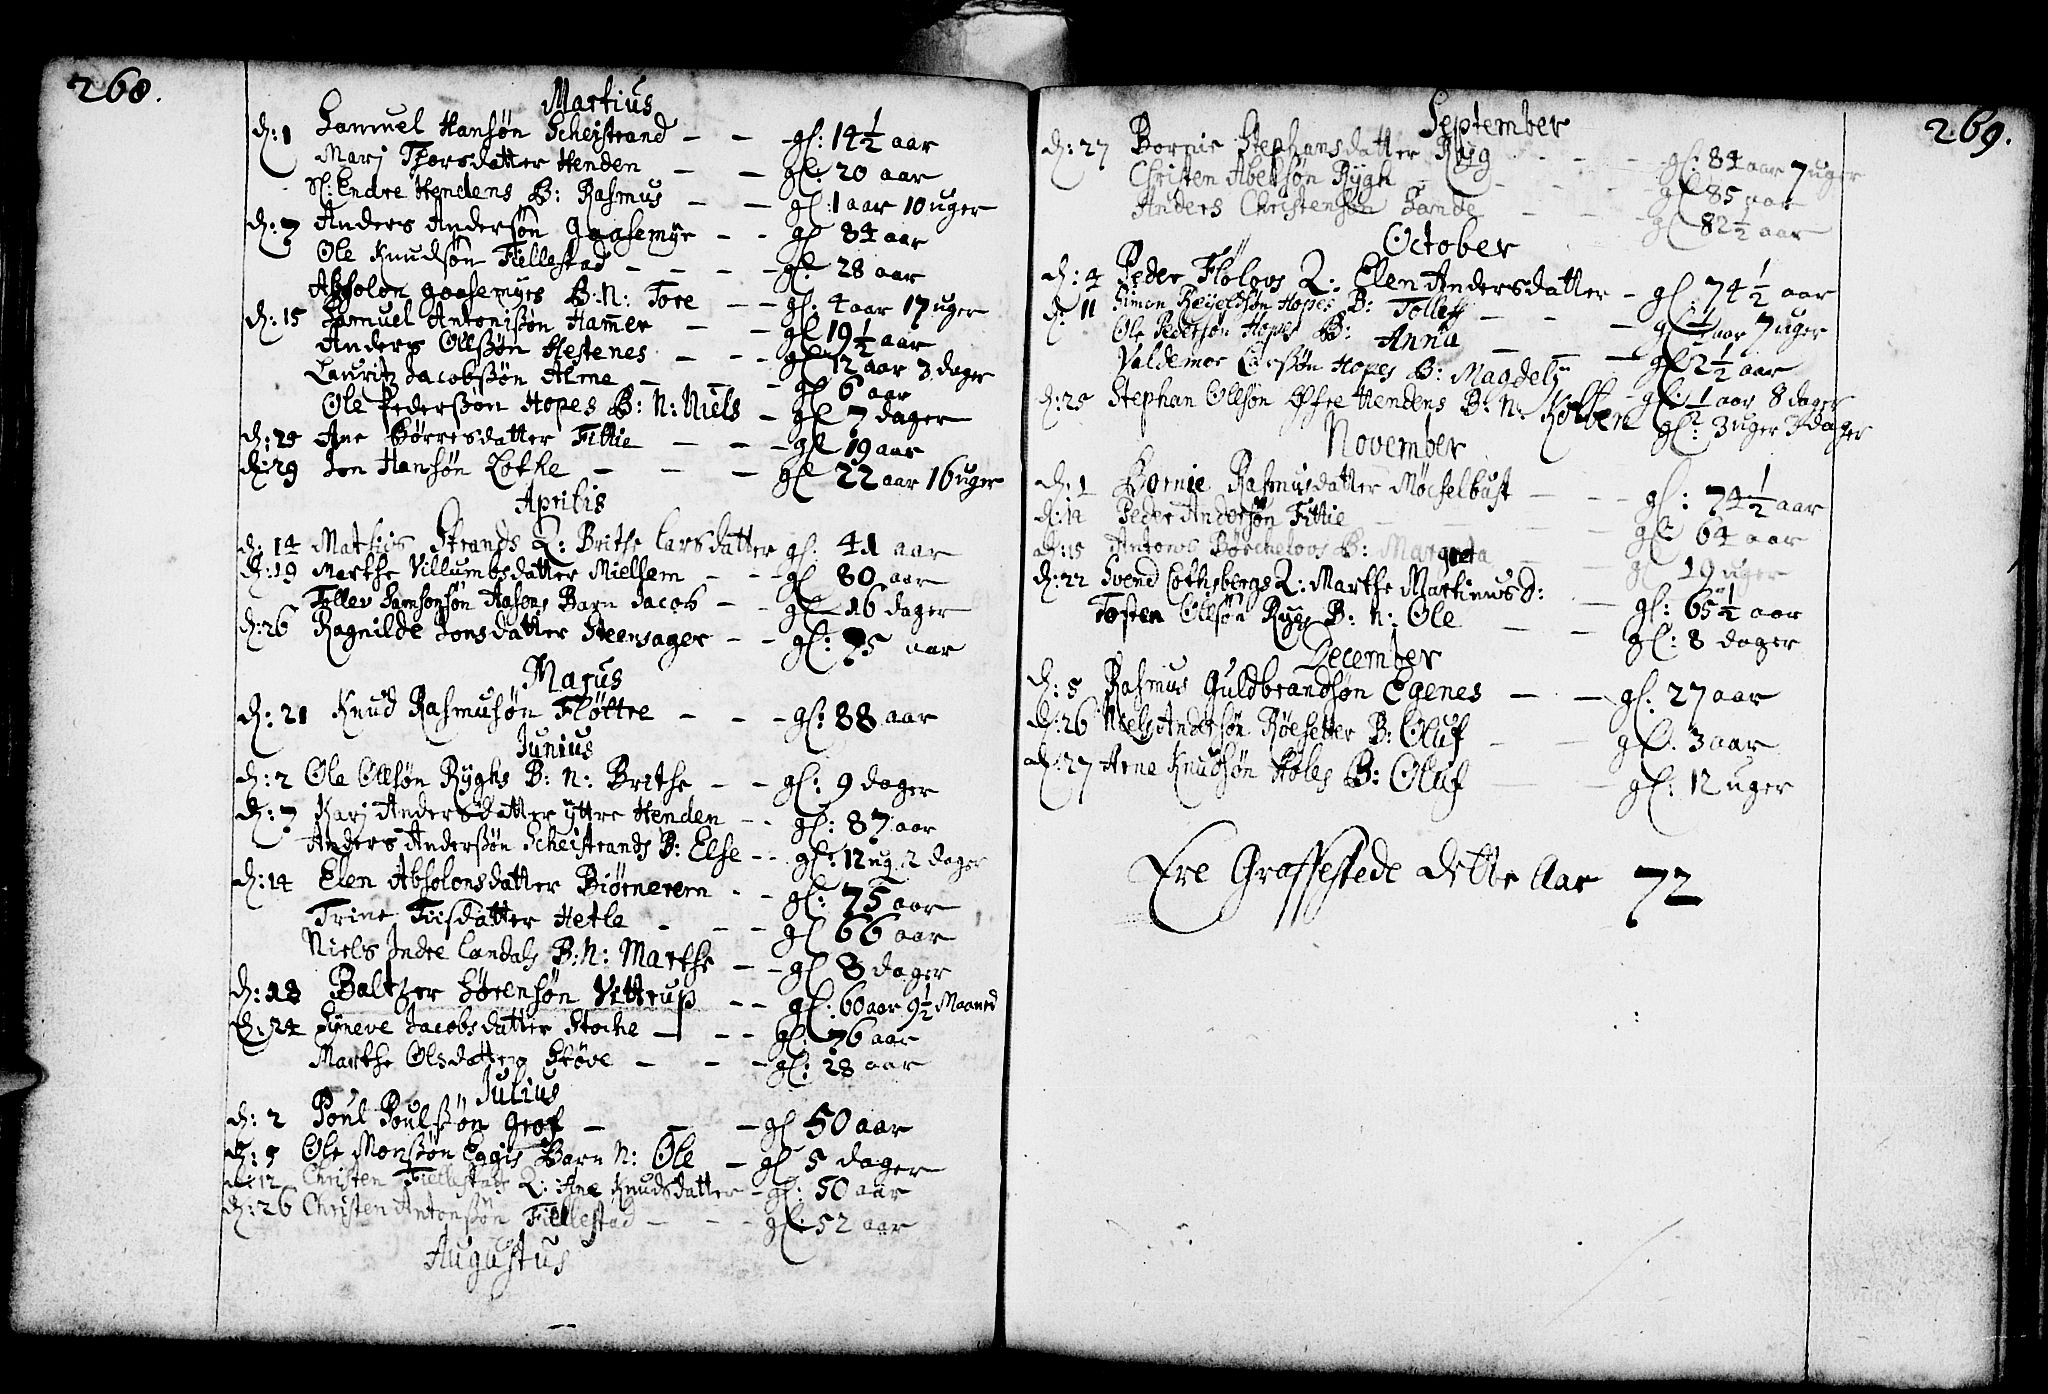 268.
Martius
d: 1 Samuel Hansøn Scheistrand - - gl: 14½ aar
Marj Thorsdatter Henden - - gl: 20 aar
Sl: Endre Hendens B: Rasmus - - gl: 1 aar 10 uger
d: 7 Anders Andersøn Gaasemyr - - gl 84 aar
Ole Knudsøn Fiellestad - - - gl: 28 aar
Absolon Gaasemyrs B: N: Tore - - gl: 4 aar 17 uger
d: 15 Samuel Antonisøn Hamer - - gl 19½ aar
Anders Ollssøn Hestenes - - - gl 12 aar 3 dager
Lauritz Jacobssøn Alme - - - gl 6 aar
Ole Pederssøn Hopes B: N: Niels - gl 7 dager
d: 25 Ane Børresdatter Fittie - - - gl 19 aar
d: 29 Jon Hansøn Lothe - - - gl 22 aar 16 uger
Aprilis
d: 14 Mathis Strands Q: Brithe Larsdatter gl: 41 aar
d: 19 Marthe Villumbsdatter Mielsem - - - gl 80 aar
Tollev Samsonsøn Aasens Barn Jacob - - gl 16 dager
d: 26 Ragnilde Jonsdatter Steensager - - gl: 75 aar
Majus
d: 21 Knud Rasmusøn Fløttre - - - gl: 88 aar
Junius
d: 2 Ole Ollsøn Ryghs B: N: Brithe - - gl: 9 dager
d: 7 Karj Andersdatter yttre Henden - - gl: 87 aar
Anders Anderssøn Scheistrands B: Else - - gl: 12 ug 2 dager
d: 14 Elen Absolonsdatter Biørnerem - - gl: 75 aar
Trine Tiisdatter Hetle - - - gl 66 aar
Niels Indre Landals B: N: Marthe - - gl 8 dager
d: 18 Baltzer Sørensøn Vettrup - - gl: 60 aar 9½ Maaned
d: 24 Syneve Jacobsdatter Stoche - - - gl: 76 aar
Marthe Olsdatter Støve - - - gl: 28 aar
Julius
d: 2 Poul Poulssøn Grof - - - gl 50 aar
d: 5 Ole Monssøn Eagis Barn N: Ole - gl 5 dager
d: 12 Christen Fiellestads Q: Ane Knudsdatter - gl: 50 aar
d: 26 Christen Antonssøn Fiellestad - - - gl: 52 aar
Augustus
269.
September
d: 27 Bornie Stephansdatter Ryg - - - gl: 84 aar 7 uger
Christen Abelsøn Rygh - - - gl 85 aar
Anders Christensøn Sande - - - gl 82½ aar
October
d: 4 Peder Fløloos Q: Elen Andersdatter - gl: 74½ aar
d: 11 Simon Reyeldsøn Hopes B: Tolleff - - - gl ½ aar 7 uger
Ole Pedersøn Hopes B: Anna - - - gl 2½ aar
Valdemor Larssøn Hopes B: Magdeli - gl: ½ aar 8 dager
d: 25 Stephan Ollsøn Øfre Hendens B: N: Kolben gl: 3 uger 3 dager
November
d: 1 Bornie Rasmusdatter Møchelbust - - - gl: 74½ aar
d: 14 Peder Andersøn Fittie - - - gl: 64 aar
d: 15 Antonis Børcheloos B: Margreta - - gl 19 uger
d: 22 Svend Lothsbergs Q: Marthe Martinusd: - gl: 65½ aar
Tosten Ollsøn Rygs B: N: Ole - - gl: 8 dager
December
d: 5 Rasmus Guldbrandsøn Egenes - - gl: 27 aar
d: 26 Niels Andersøn Røesetter B: Oluf - - gl: 3 aar
d: 27 Arne Knudsøn Holes B: Oluf - - gl: 12 uger
Ere Graffestede dette Aar 72